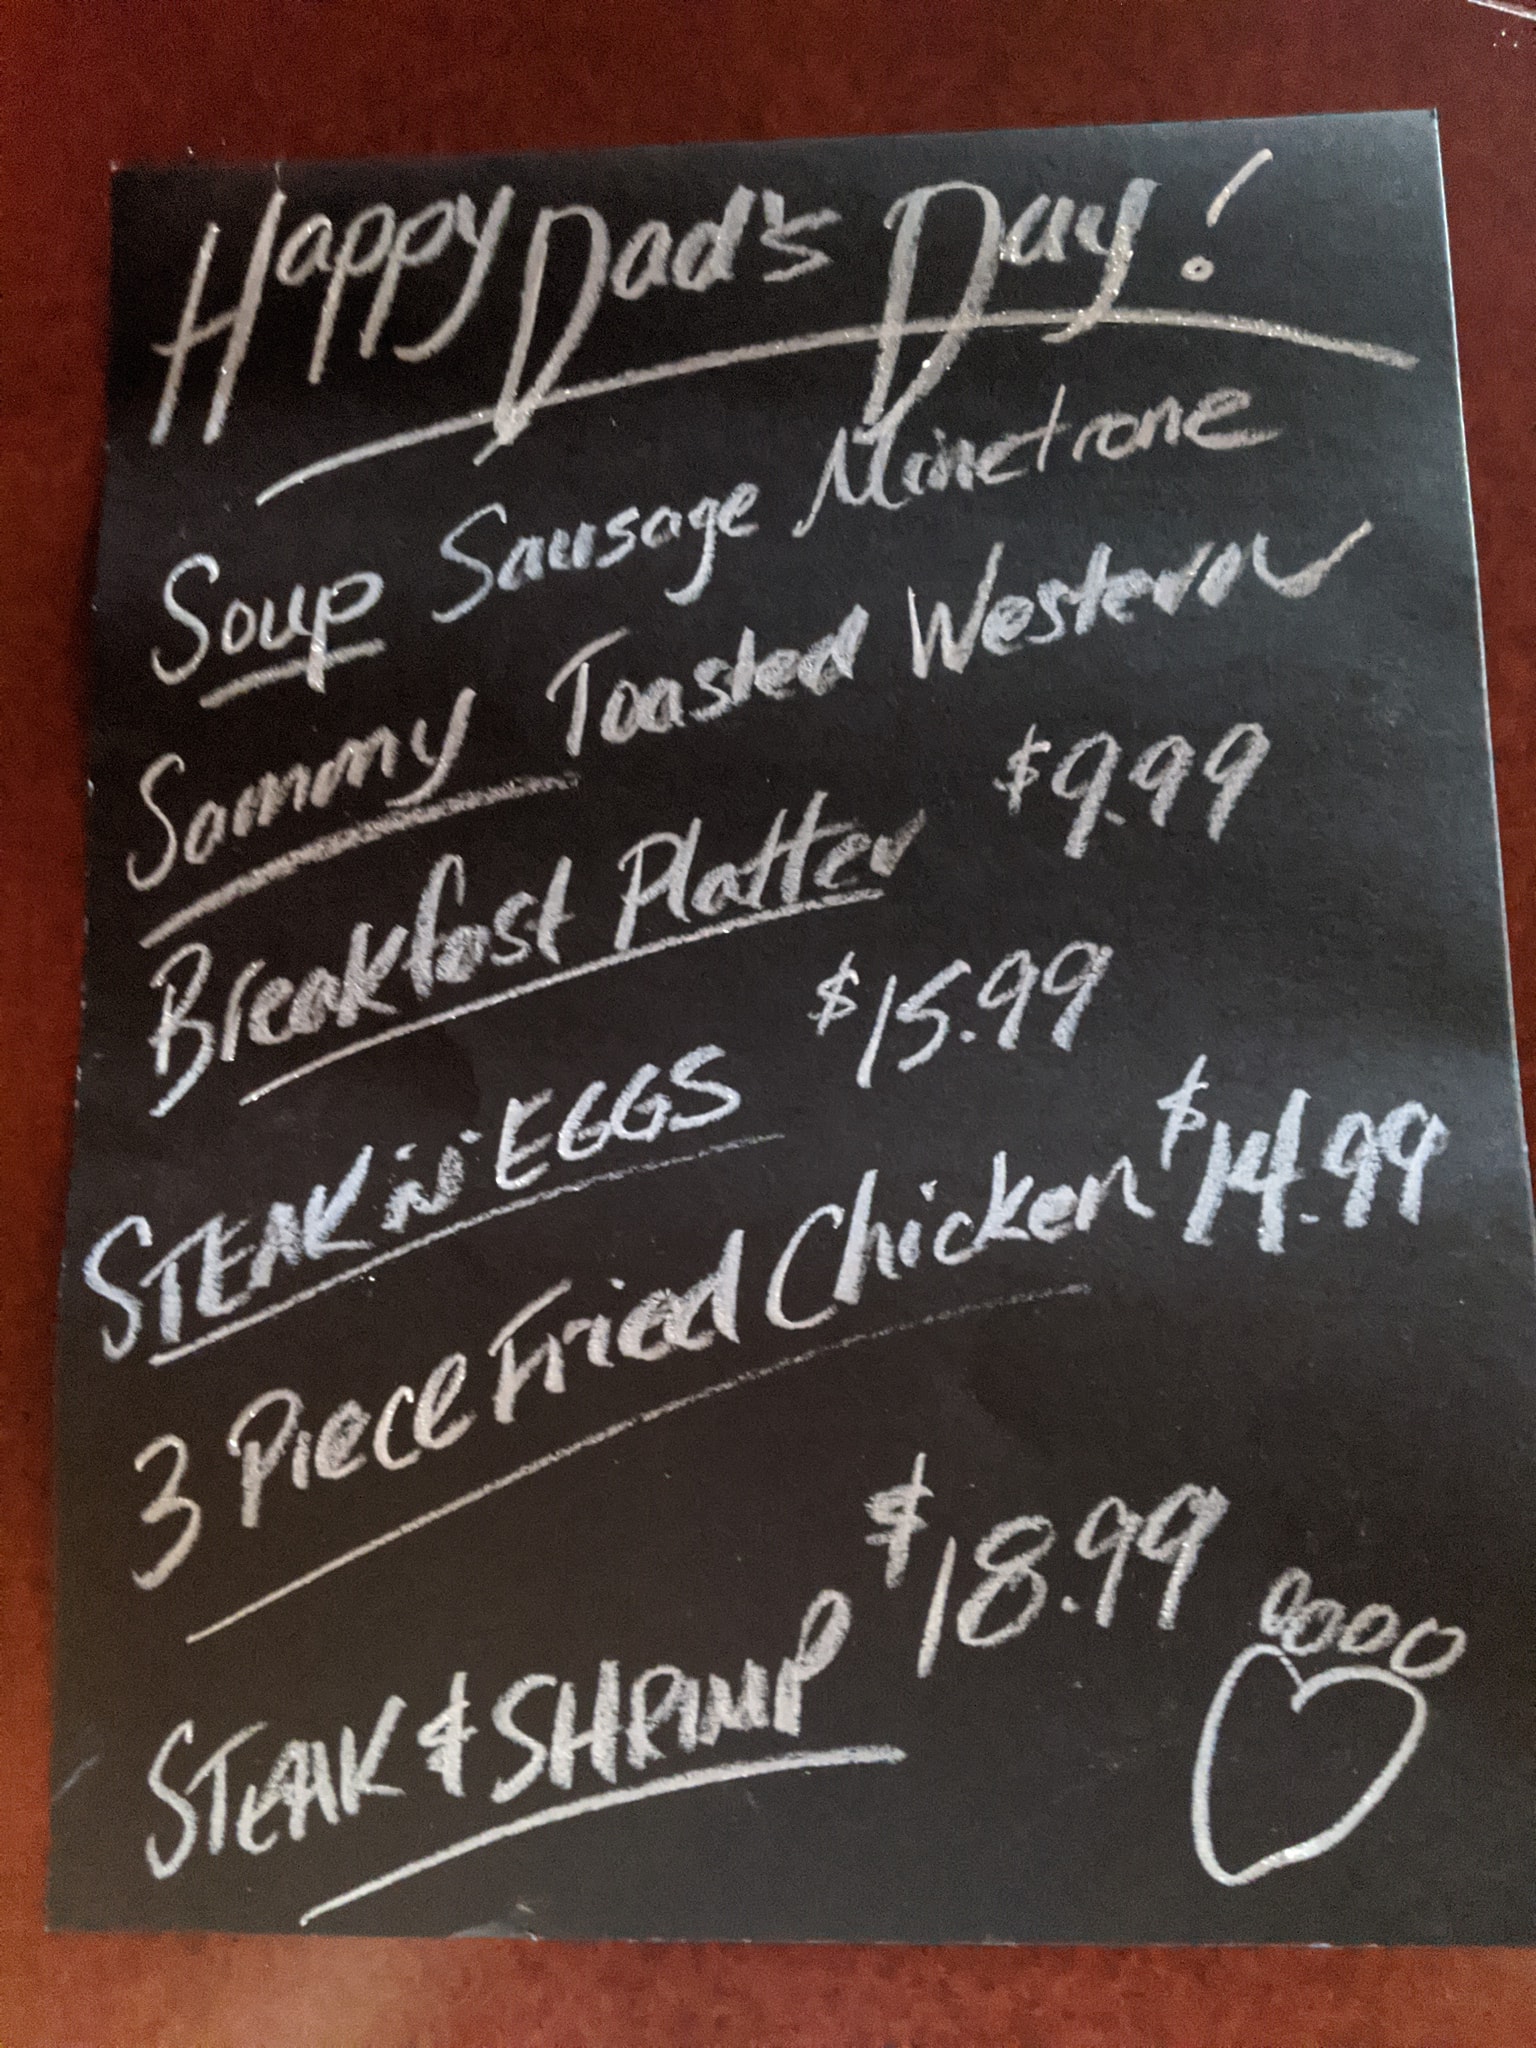 Happy Dad's Day!
Soup Sausage Minetrone
Sammy Toasted Western
Breakfast Platter $9.99
STEAK 'N' EGGS $15.99
3 Piece Fried Chicken $14.99
STEAK & SHRIMP $18.99